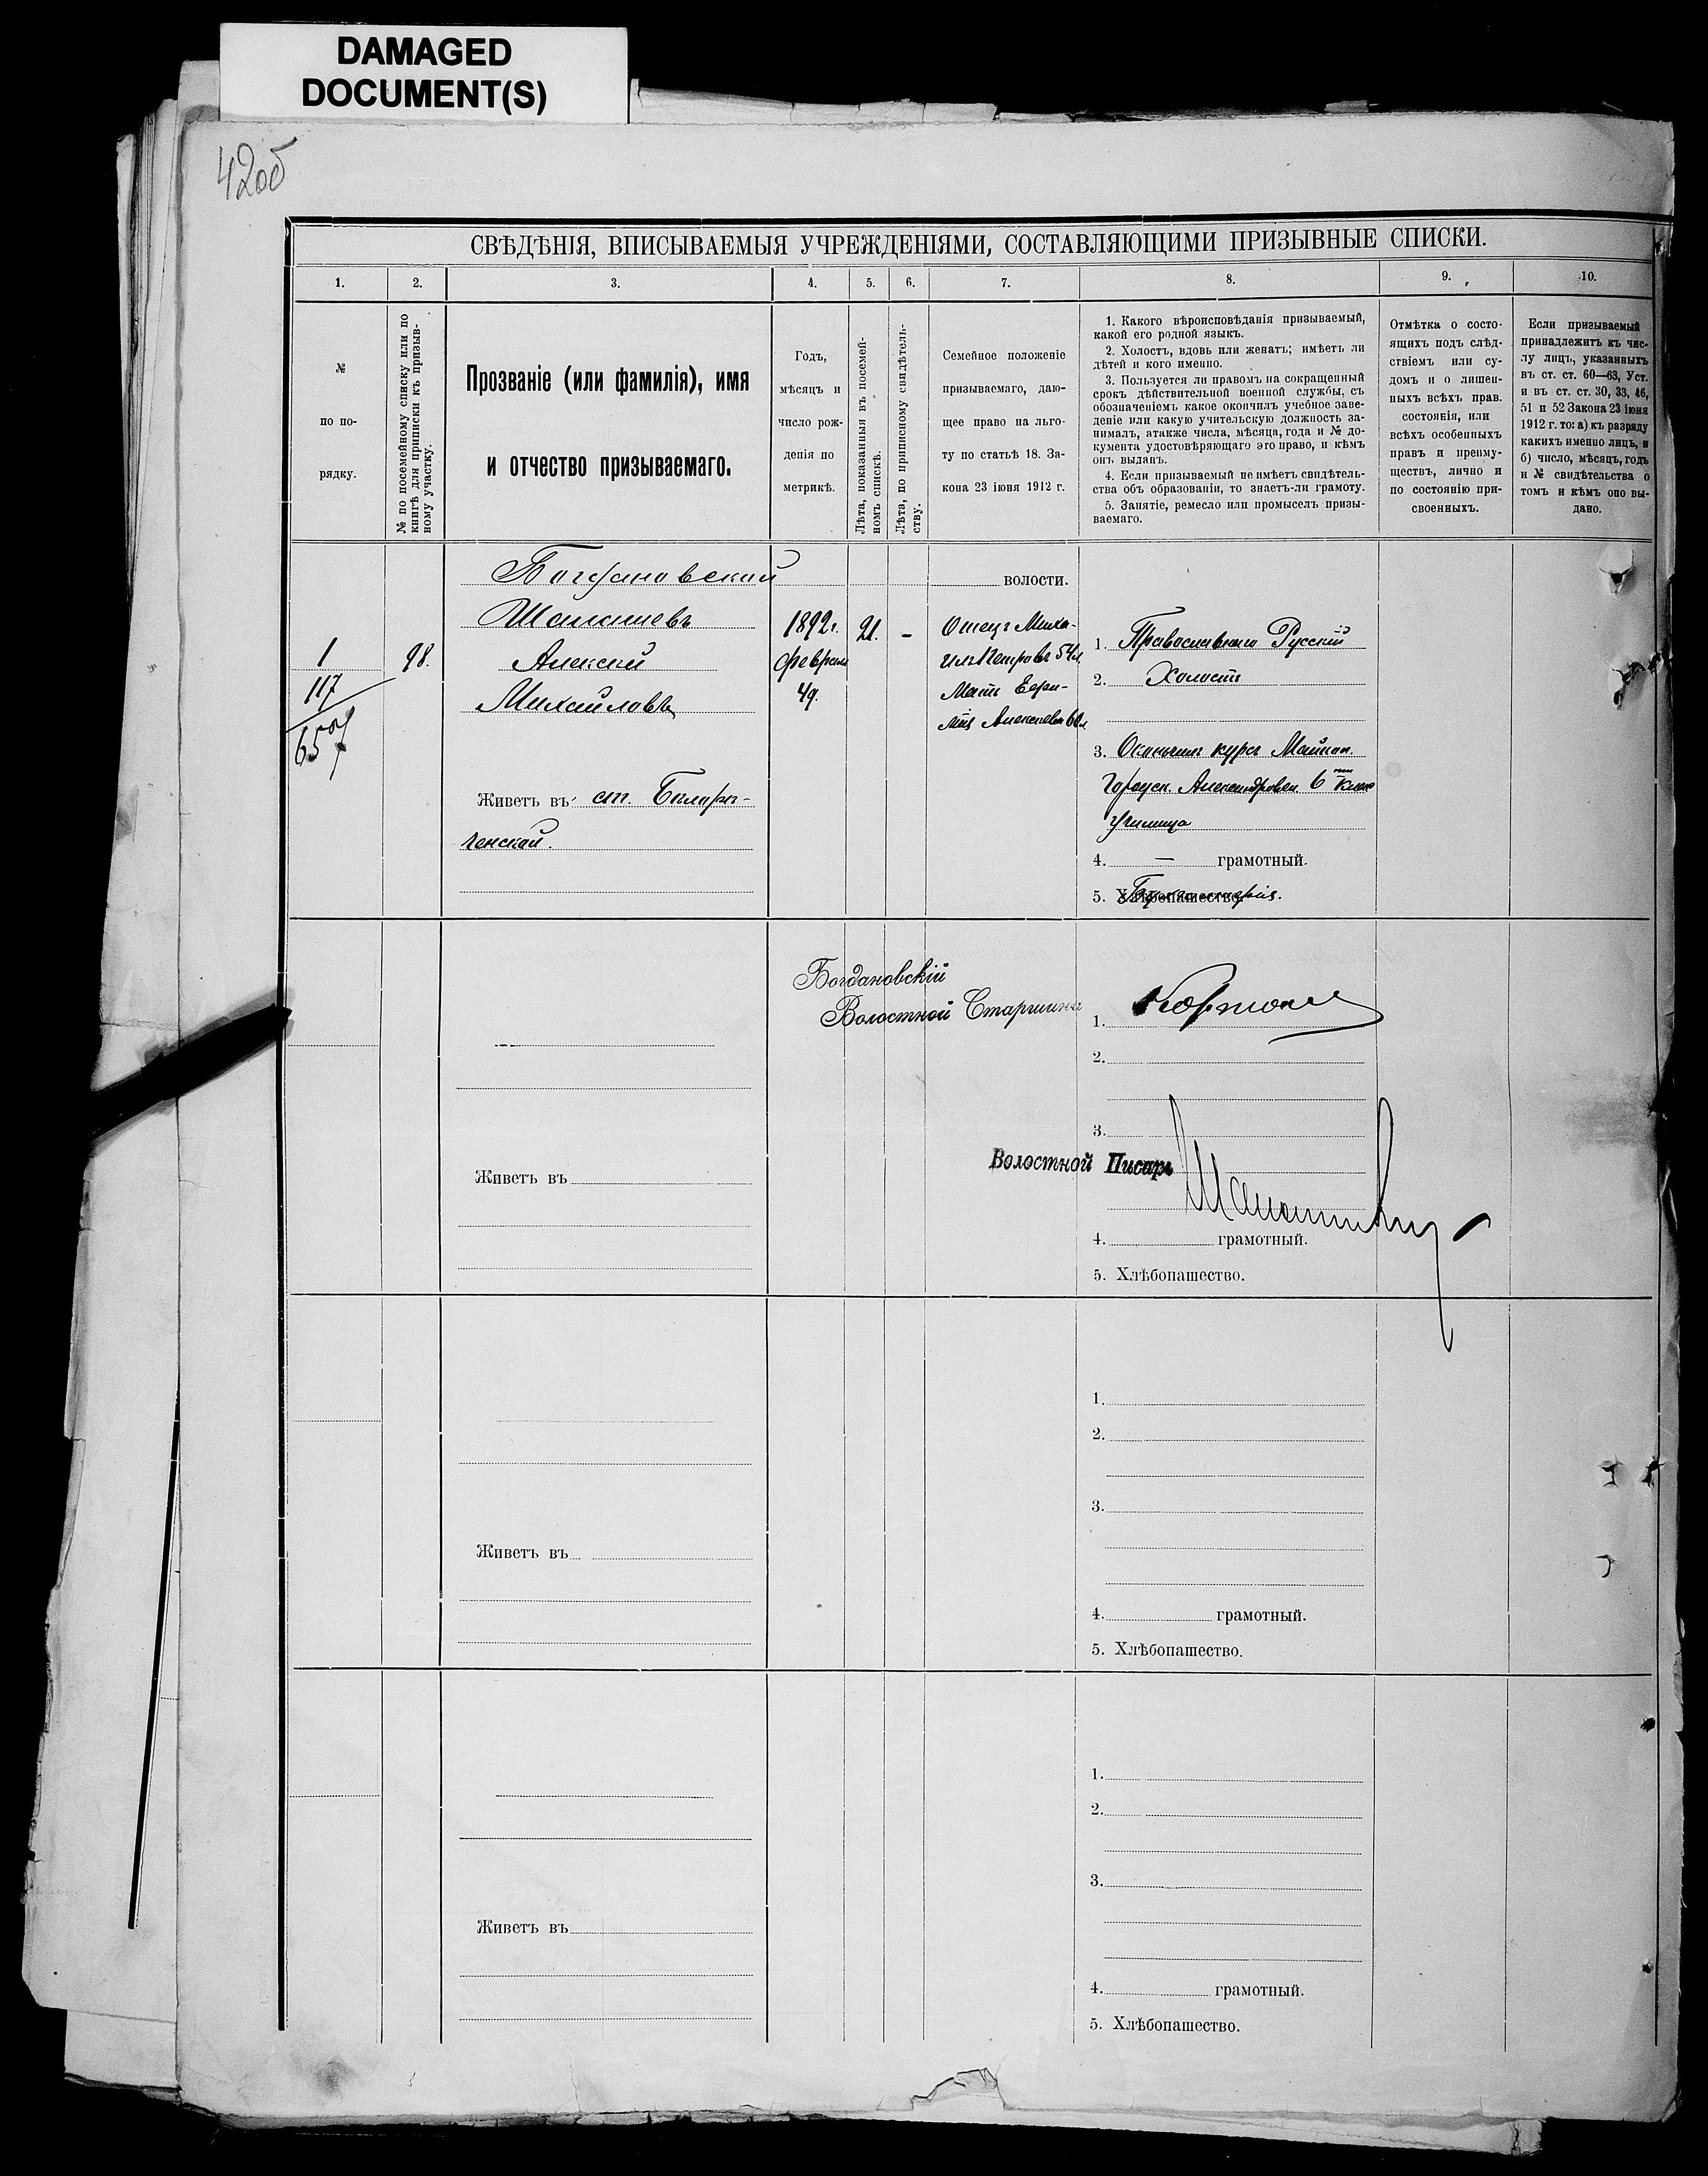 DAMAGED
DOCUMENT(S)
42об
СВѢДѢНІЯ, ВПИСЫВАЕМЫЯ УЧРЕЖДЕНІЯМИ, СОСТАВЛЯЮЩИМИ ПРИЗЫВНЫЕ СПИСКИ.
1. 2. 3. 4. 5. 6. 7. 8. 9. 10.
№
по по-
рядку.
№ по посемейному списку или по
книгѣ для приписки къ призыв-
ному участку.
Прозваніе (или фамилія), имя
и отчество призываемаго.
Годъ,
мѣсяцъ и
число рож-
денія по
метрикѣ.
Лѣта, показанныя въ посемей-
номъ спискѣ.
Лѣта, по приписному свидѣтель-
ству.
Семейное положеніе
призываемаго, даю-
щее право на льго-
ту по статьѣ 18. За-
кона 23 іюня 1912 г.
1. Какого вѣроисповѣданія призываемый,
какой его родной языкъ.
2. Холостъ, вдовъ или женатъ; имѣетъ ли
дѣтей и кого именно.
3. Пользуется ли правомъ на сокращенный
срокъ дѣйствительной военной службы, съ
обозначеніемъ какое окончилъ учебное заве-
деніе или какую учительскую должность за-
нималъ, атакже числа, мѣсяца, года и № до-
кумента удостовѣряющаго это право, и кѣмъ
онъ выданъ.
4. Если призываемый не имѣетъ свидѣтель-
ства объ образованіи, то знаетъ-ли грамоту.
5. Занятіе, ремесло или промыселъ призы-
ваемаго.
Отмѣтка о состо-
ящихъ подъ слѣд-
ствіемъ или су-
домъ и о лишен-
ныхъ всѣхъ прав.
состоянія, или
всѣхъ особенныхъ
правъ и преиму-
ществъ, лично и
по состоянію при-
своенныхъ.
Если призываемый
принадлежитъ къ чис-
лу лицъ, указанныхъ
въ ст. ст. 60—63, Уст.
и въ ст. ст. 30, 33, 46,
51 и 52 Закона 23 іюня
1912 г. то: а) къ разряду
какихъ именно лицъ, и
б) число, мѣсяцъ, годъ
и № свидѣтельства о
томъ и кѣмъ оно вы-
дано.
Богдановской волости.
1
117
657
98.
Алексей
Михайловъ
Живетъ въ ст. Бѣларѣ-
ченской.
1892г.
февраля
4д.
21.
-
Отецъ Миха-
илъ Петровъ 54л.
Мать Евдо-
Алексеева 60л.
1. Православнаго Русскій
2. Холостъ
3. Окончилъ курсъ Майкоп.
Городск. Александровск. 6ти клас
училища
4. — грамотный.
5. Хлѣбопашество.
Богдановскій
Волостной Старшина
1.
2.
3.
Волостной Писарь
Живетъ въ
4. грамотный.
5. Хлѣбопашество.
1.
2.
3.
Живетъ въ
4. грамотный.
5. Хлѣбопашество.
1.
2.
3.
Живетъ въ
4. грамотный.
5. Хлѣбопашество.